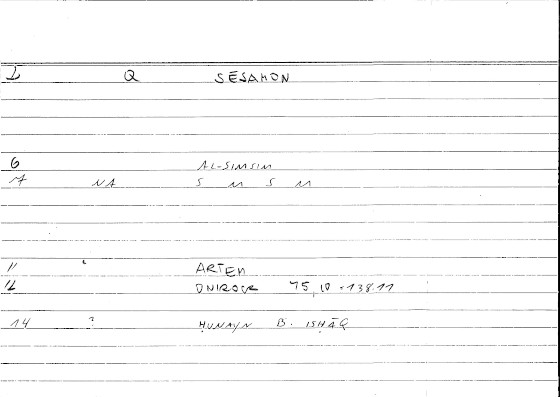 1 Q SĒSAMON
6 AL-SIMSIM
7 NA S M S M
11 ARTEM
12 ONIROCR 75,10 - 138.11
14 ? ḤUNAYN B. ISḤĀQ